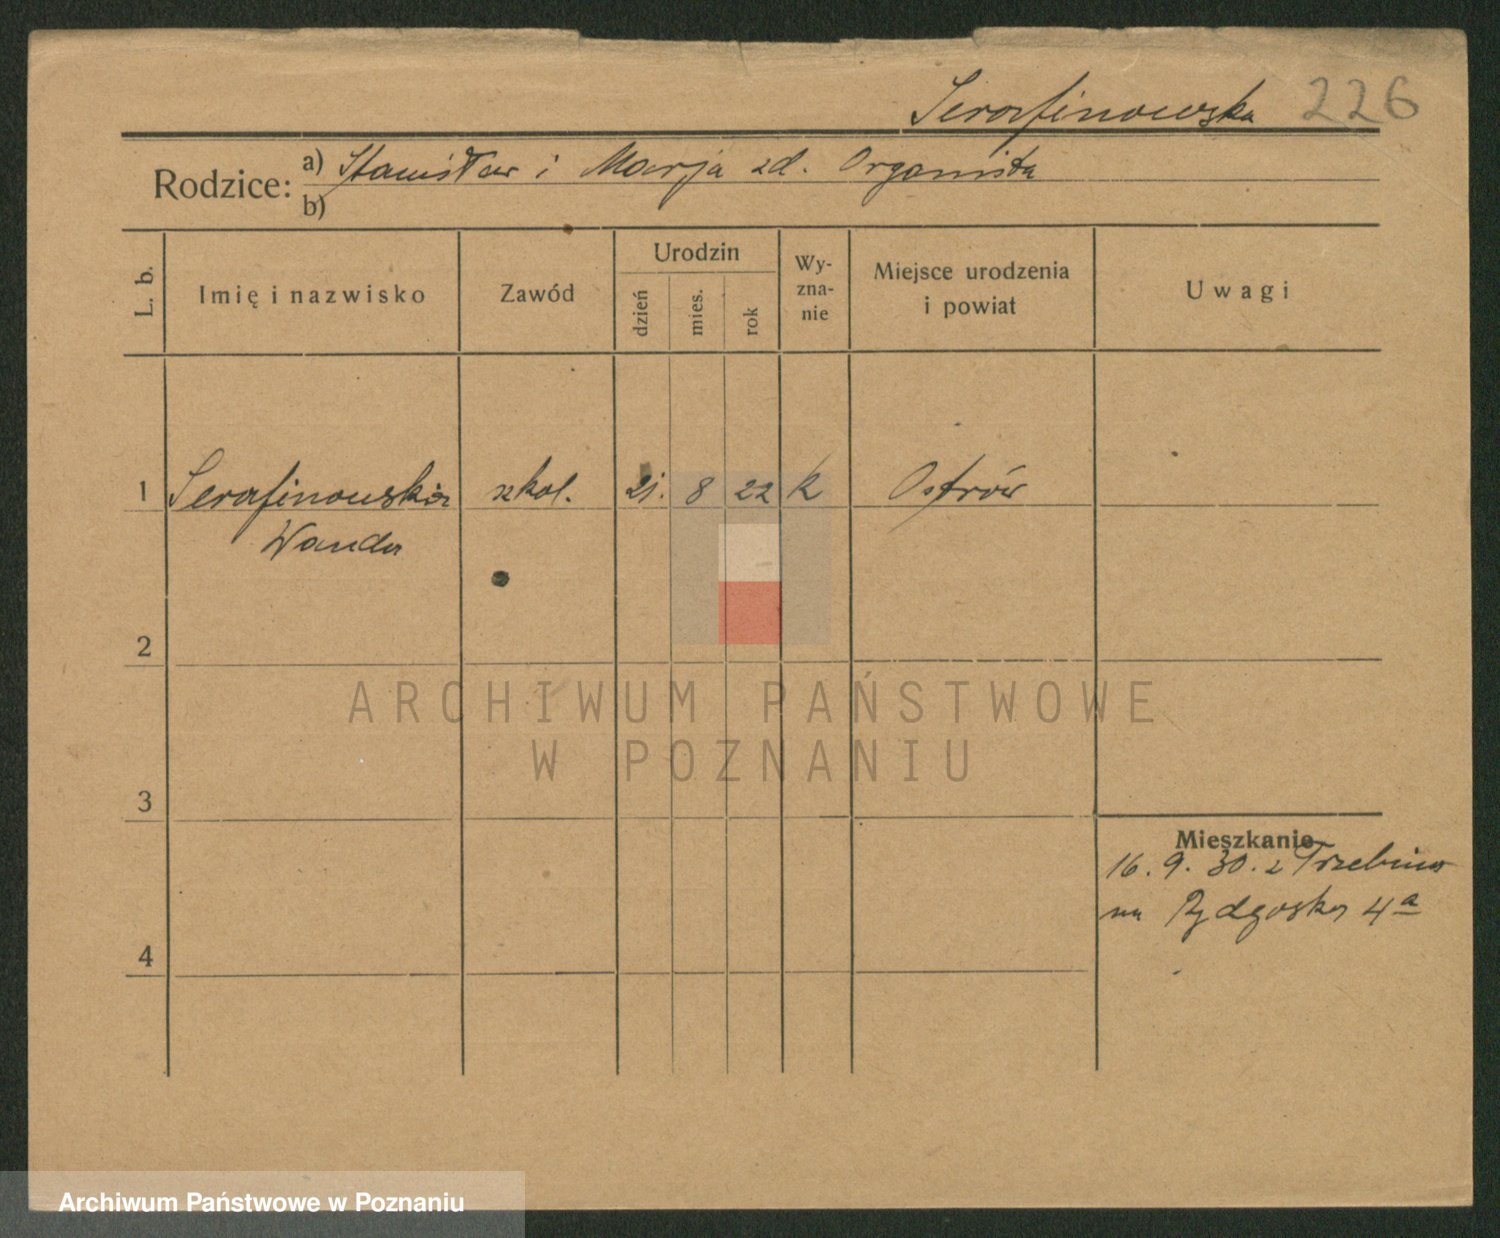 Serafinowska 226
Rodzice: a) Stanisław i Marja zd. Organista
b)
L. b.
Imię i nazwisko
Zawód
Urodzin
dzień
mies.
rok
Wy-
zna-
nie
Miejsce urodzenia
i powiat
Uwagi
1 Serafinowska szkol. 21. 8 22 k Ostrów
Wanda
2
3
4
Mieszkanie
16. 9. 30. z Trzebina
na Bydgoska 4a
ARCHIWUM PAŃSTWOWE
W POZNANIU
Archiwum Państwowe w Poznaniu